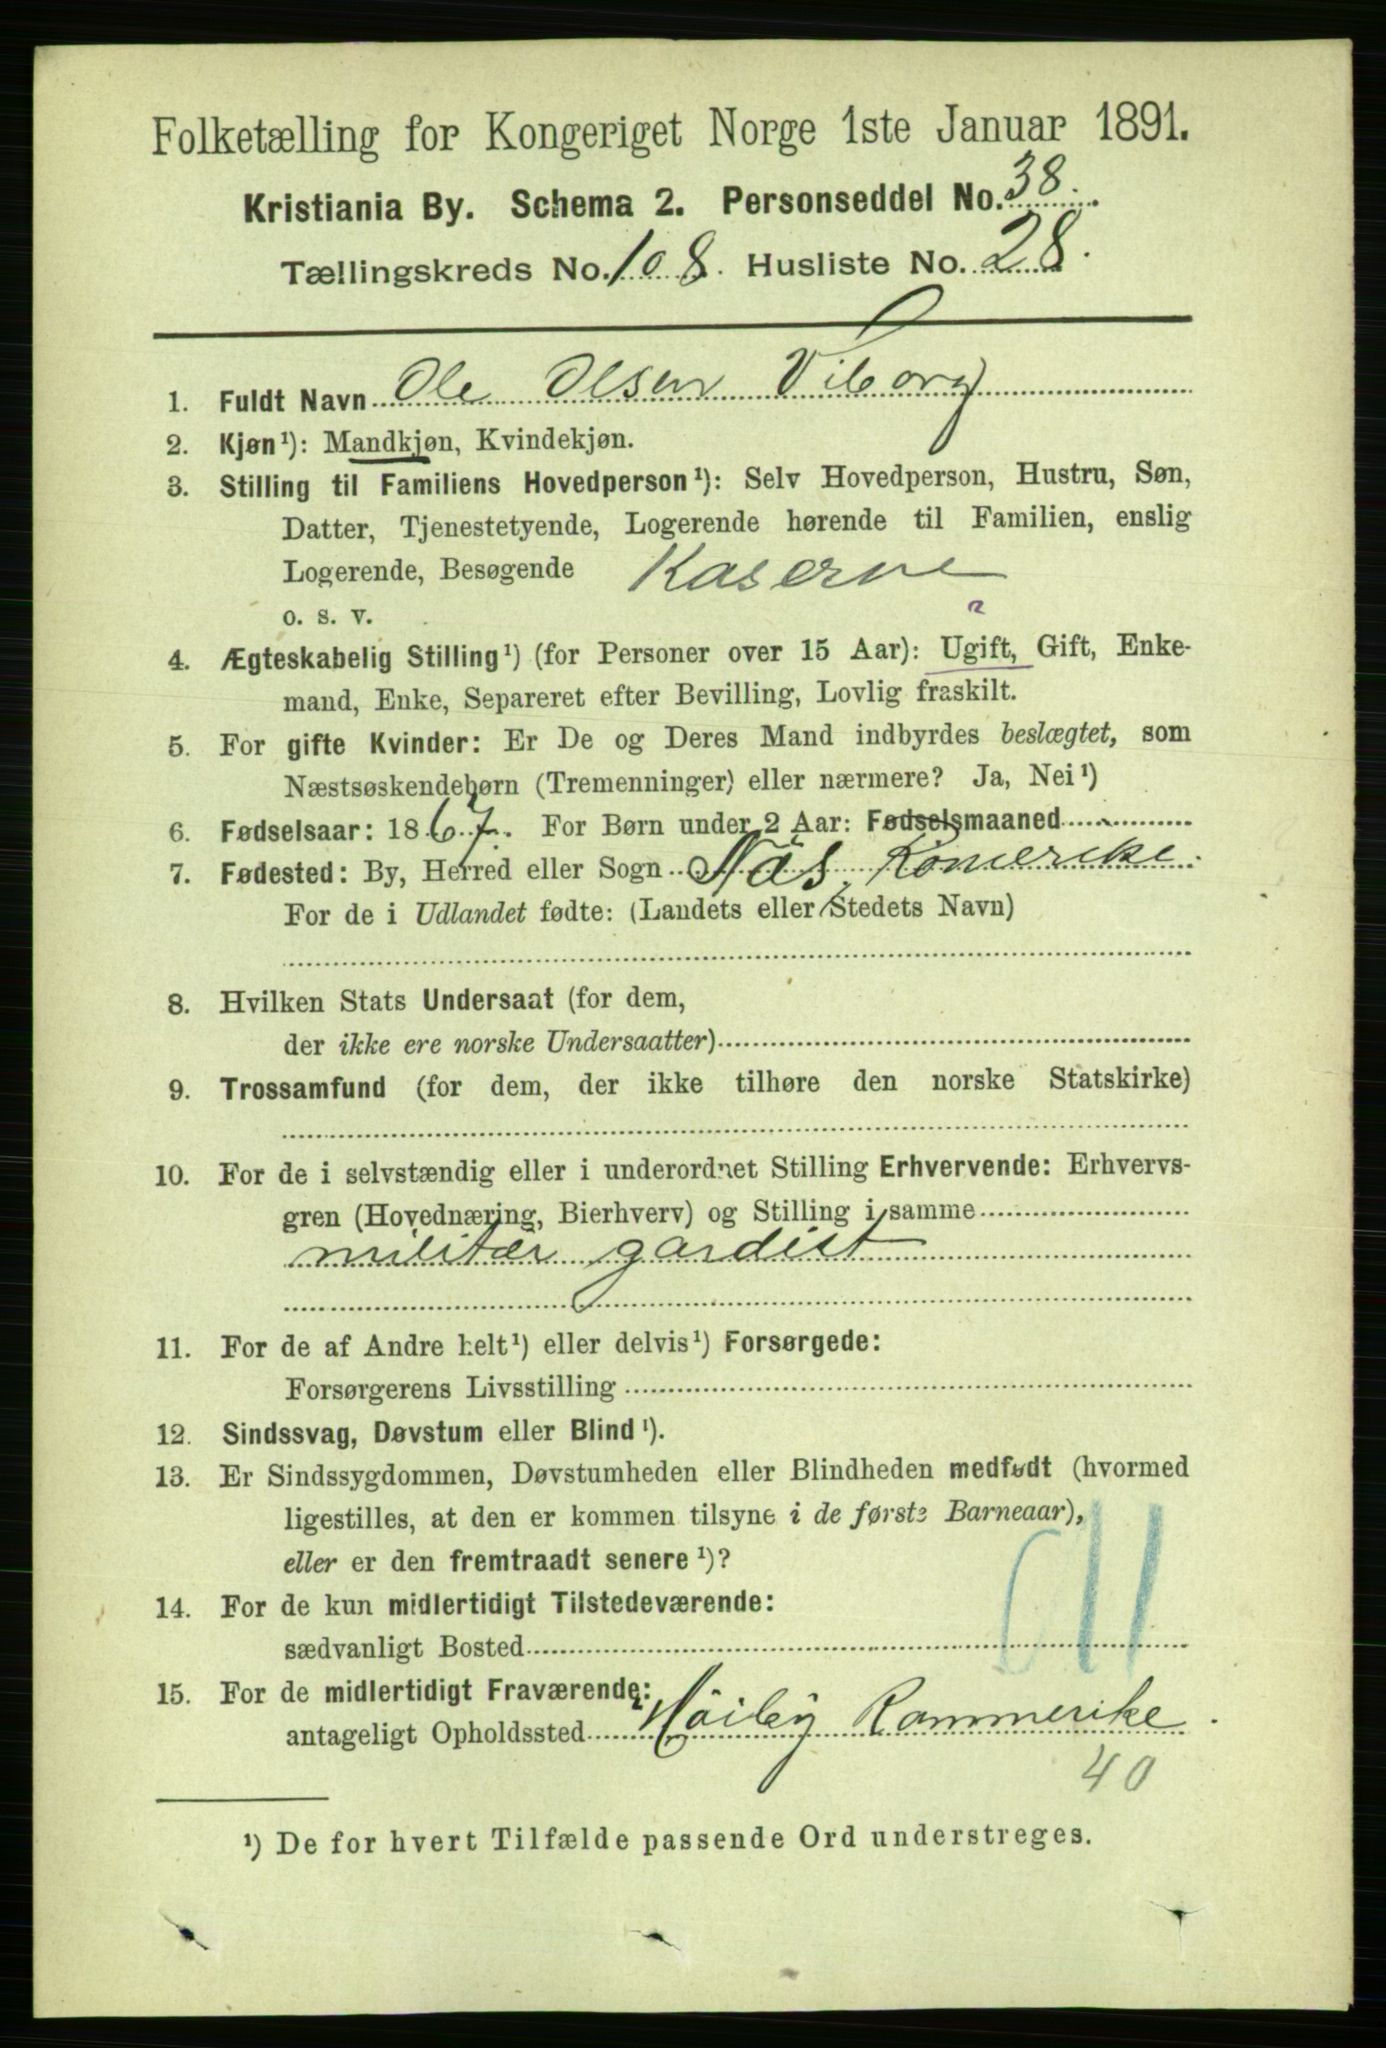 Folketælling for Kongeriget Norge 1ste Januar 1891.
Kristiania By. Schema 2. Personseddel No. 38.
Tællingskreds No. 108. Husliste No. 28.
1. Fuldt Navn Ole Olsen Viborg
2. Kjøn¹): Mandkjøn, Kvindekjøn.
3. Stilling til Familiens Hovedperson¹): Selv Hovedperson, Hustru, Søn,
Datter, Tjenestetyende, Logerende hørende til Familien, enslig
Logerende, Besøgende Kaserne
o. s. v.
4. Ægteskabelig Stilling¹) (for Personer over 15 Aar): Ugift, Gift, Enke-
mand, Enke, Separeret efter Bevilling, Lovlig fraskilt.
5. For gifte Kvinder: Er De og Deres Mand indbyrdes beslægtet, som
Næstsøskendebørn (Tremenninger) eller nærmere? Ja, Nei¹)
6. Fødselsaar: 1867. For Børn under 2 Aar: Fødselsmaaned
7. Fødested: By, Herred eller Sogn Näs, Romerike.
For de i Udlandet fødte: (Landets eller Stedets Navn)
8. Hvilken Stats Undersaat (for dem,
der ikke ere norske Undersaatter)
9. Trossamfund (for dem, der ikke tilhøre den norske Statskirke)
10. For de i selvstændig eller i underordnet Stilling Erhvervende: Erhvervs-
gren (Hovednæring, Bierhverv) og Stilling i samme
militær gardist
11. For de af Andre helt¹) eller delvis¹) Forsørgede:
Forsørgerens Livsstilling
12. Sindssvag, Døvstum eller Blind¹).
13. Er Sindssygdommen, Døvstumheden eller Blindheden medfødt (hvormed
ligestilles, at den er kommen tilsyne i de første Barneaar),
eller er den fremtraadt senere¹)?
14. For de kun midlertidigt Tilstedeværende:
sædvanligt Bosted
15. For de midlertidigt Fraværende:
antageligt Opholdssted Höiby Rommerike.
40
¹) De for hvert Tilfælde passende Ord understreges.